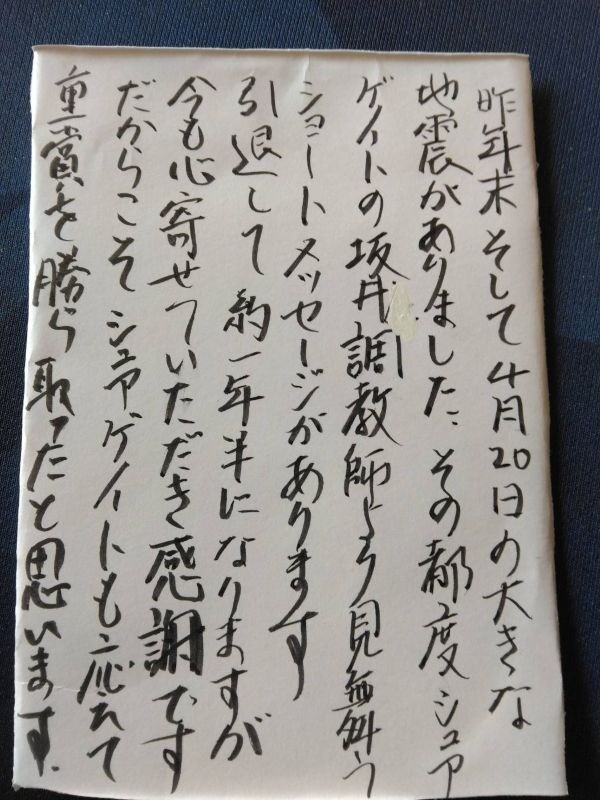 昨年末そして4月20日の大きな
地震がありました、その都度シュア
ゲイトの坂井調教師より見舞う
ショートメッセージがあります
引退して約一年半になりますが
今も心寄せていただき感謝です
だからこそシュアゲイトも応えて
重賞を勝ち取ったと思います.